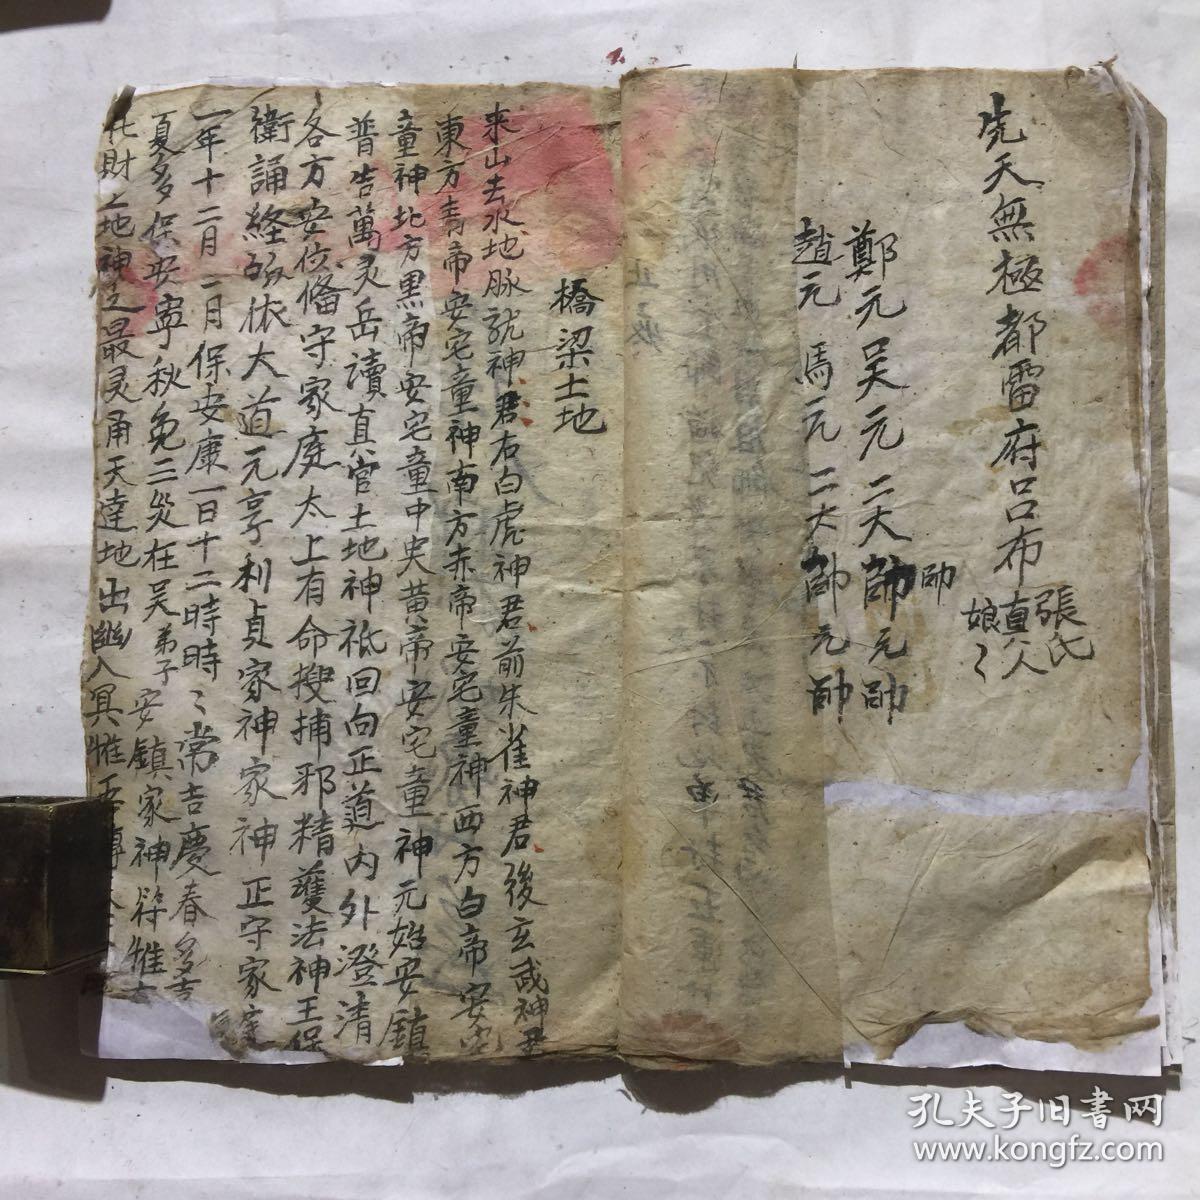 先天無極都雷府吕布
張氏
真人
娘〻
鄭元吴元二大帥元帥
帥
趙元馬元二大帥元帥
橋梁土地
來山去水地脉龍神君右白虎神君前朱雀神君後玄武神君
東方青帝安宅童神南方赤帝安宅童神西方白帝安宅
童神北方黑帝安宅童中央黄帝安宅童神元始安鎮
普告萬灵岳讀真官土地神祗回向正道内外澄清
各方安位俻守家庭太上有命搜捕邪精護法神王保
衛誦経皈依大道元亨利貞家神家神正守家庭
一年十二月一月保安康一日十二時時〻常吉慶春多吉
夏多保安寧秋免三災在吴弟子安鎮家神符惟
財土地神之最灵甬天達地出幽入冥惟吾
孔夫子旧书网
www.kongfz.com